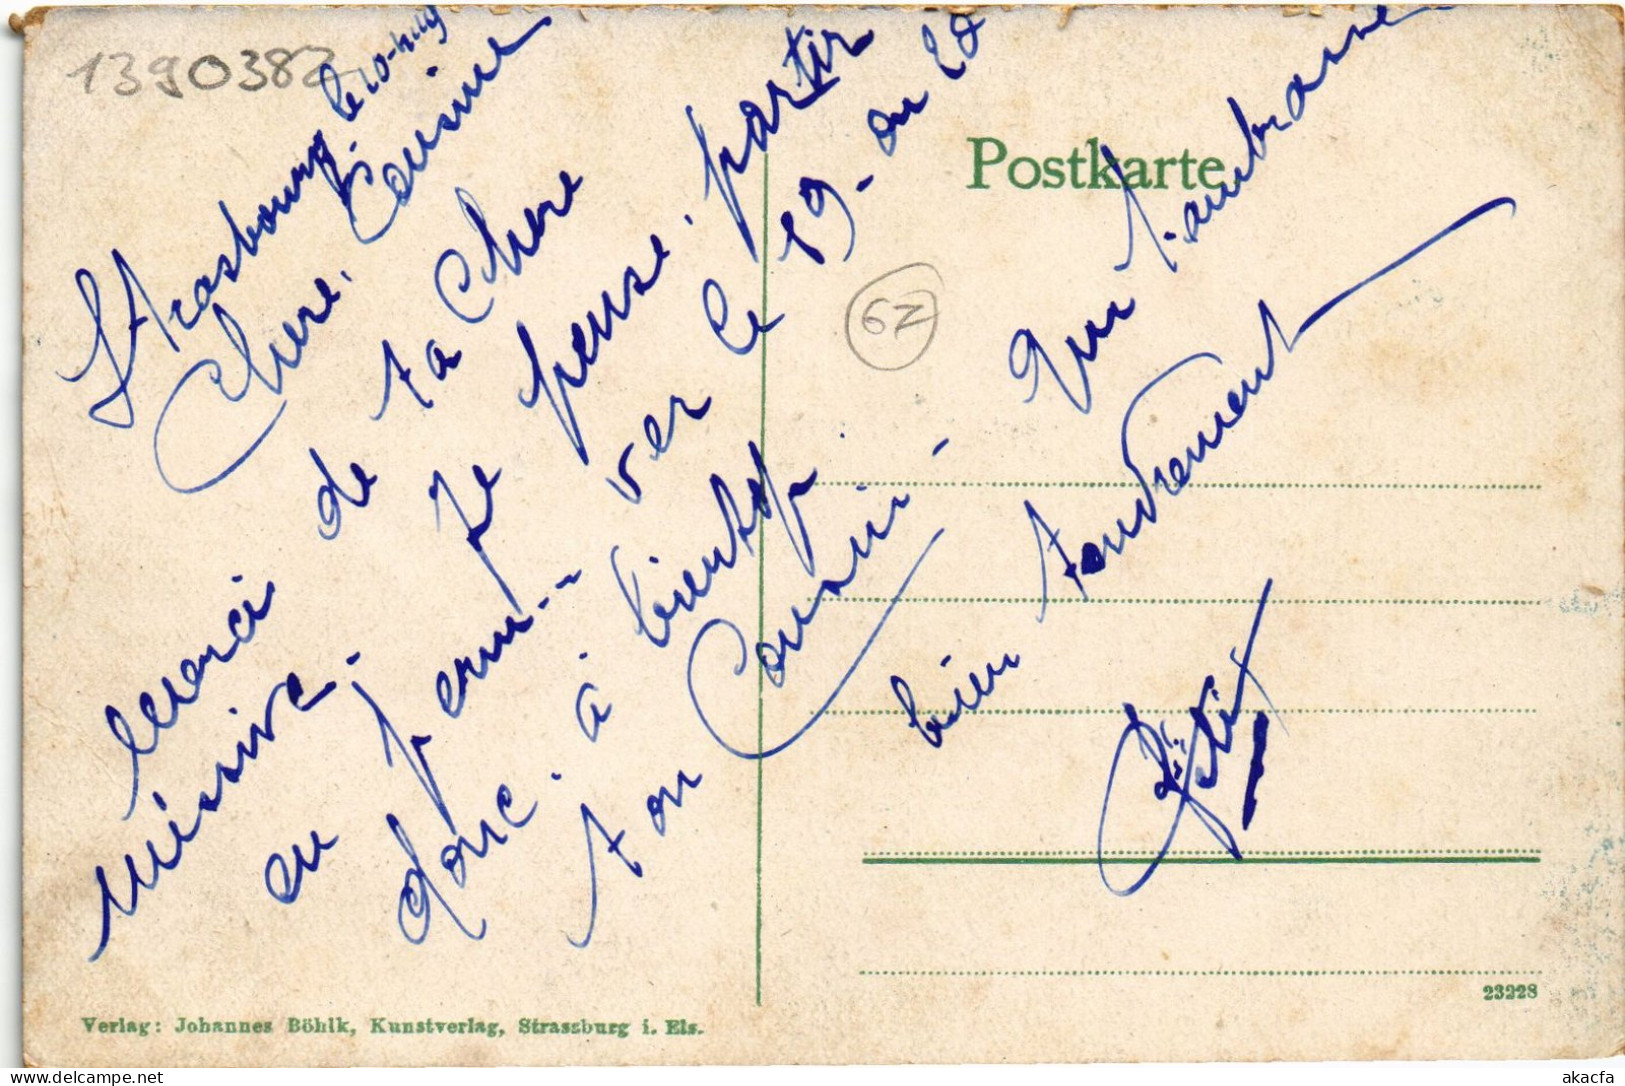 1390382
Strasbourg le 20-
Chere Cousine
merci de ta chere
missive. Je pense. partir
en perm-- ver le 19- ou 20
donc. à bientot
ton Cousin-
Qui t'ambrasse
bien tendrement
62
Postkarte
23228
Verlag: Johannes Böhlk, Kunstverlag, Strassburg i. Els.
akacfa